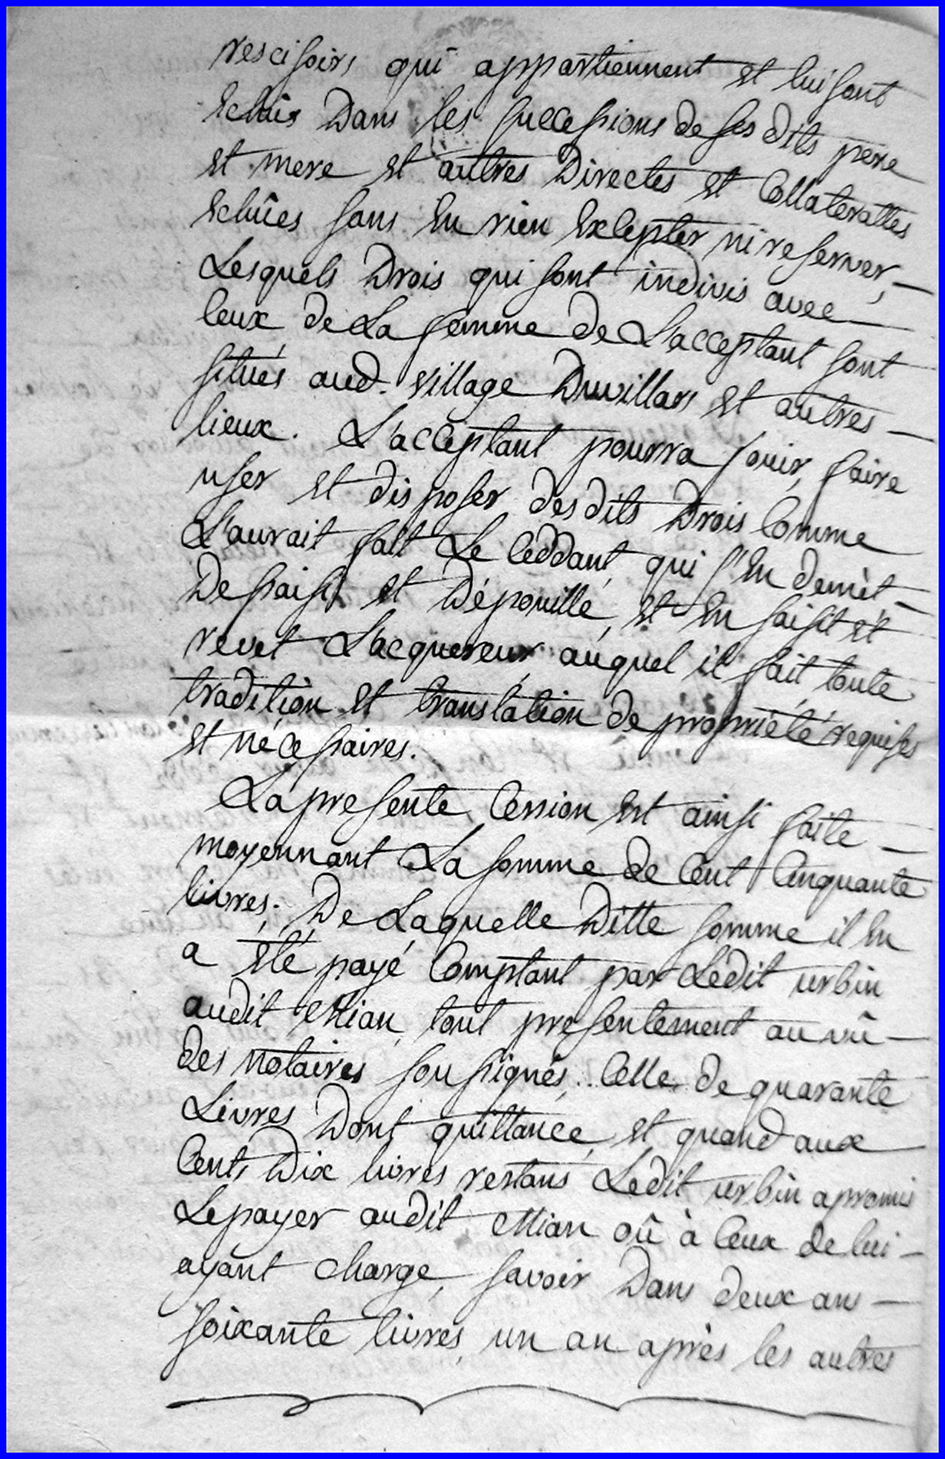 rescisoirs qui appartiennent et lui sont
Echus Dans les successions de ses dits pere
et mere et autres Directes et Collateralles
Echûes sans En rien Excepter ni reserver, —
Lesquels Drois qui sont indivis avec —
Ceux de La femme de L'acceptant sont
situés aud. village Duvillars et autres —
lieux. L'acceptant pourra jouir, faire
user et disposer desdits Drois Comme
L'aurait fait Le Ceddant, qui s'En demèt —
Desaisit et Dépouille, et En saisit et
revet L'acquereur auquel il fait toute
tradition et translation de propriété requises
et nécessaires.
La presente Cession Est ainsi faite —
moyennant La somme de Cent Cinquante
livres; De Laquelle Ditte somme il En
a Eté payé Comptant par Ledit urbin
audit Mian tout presentement au vû —
Des notaires soussignés.. Celle de quarante
Livres Dont quittance, et quand aux
Cents Dix livres restans Ledit urbin a promis
Le payer audit Mian où à Ceux de lui —
ayant charge, savoir Dans deux ans —
soixante livres, un an après les autres